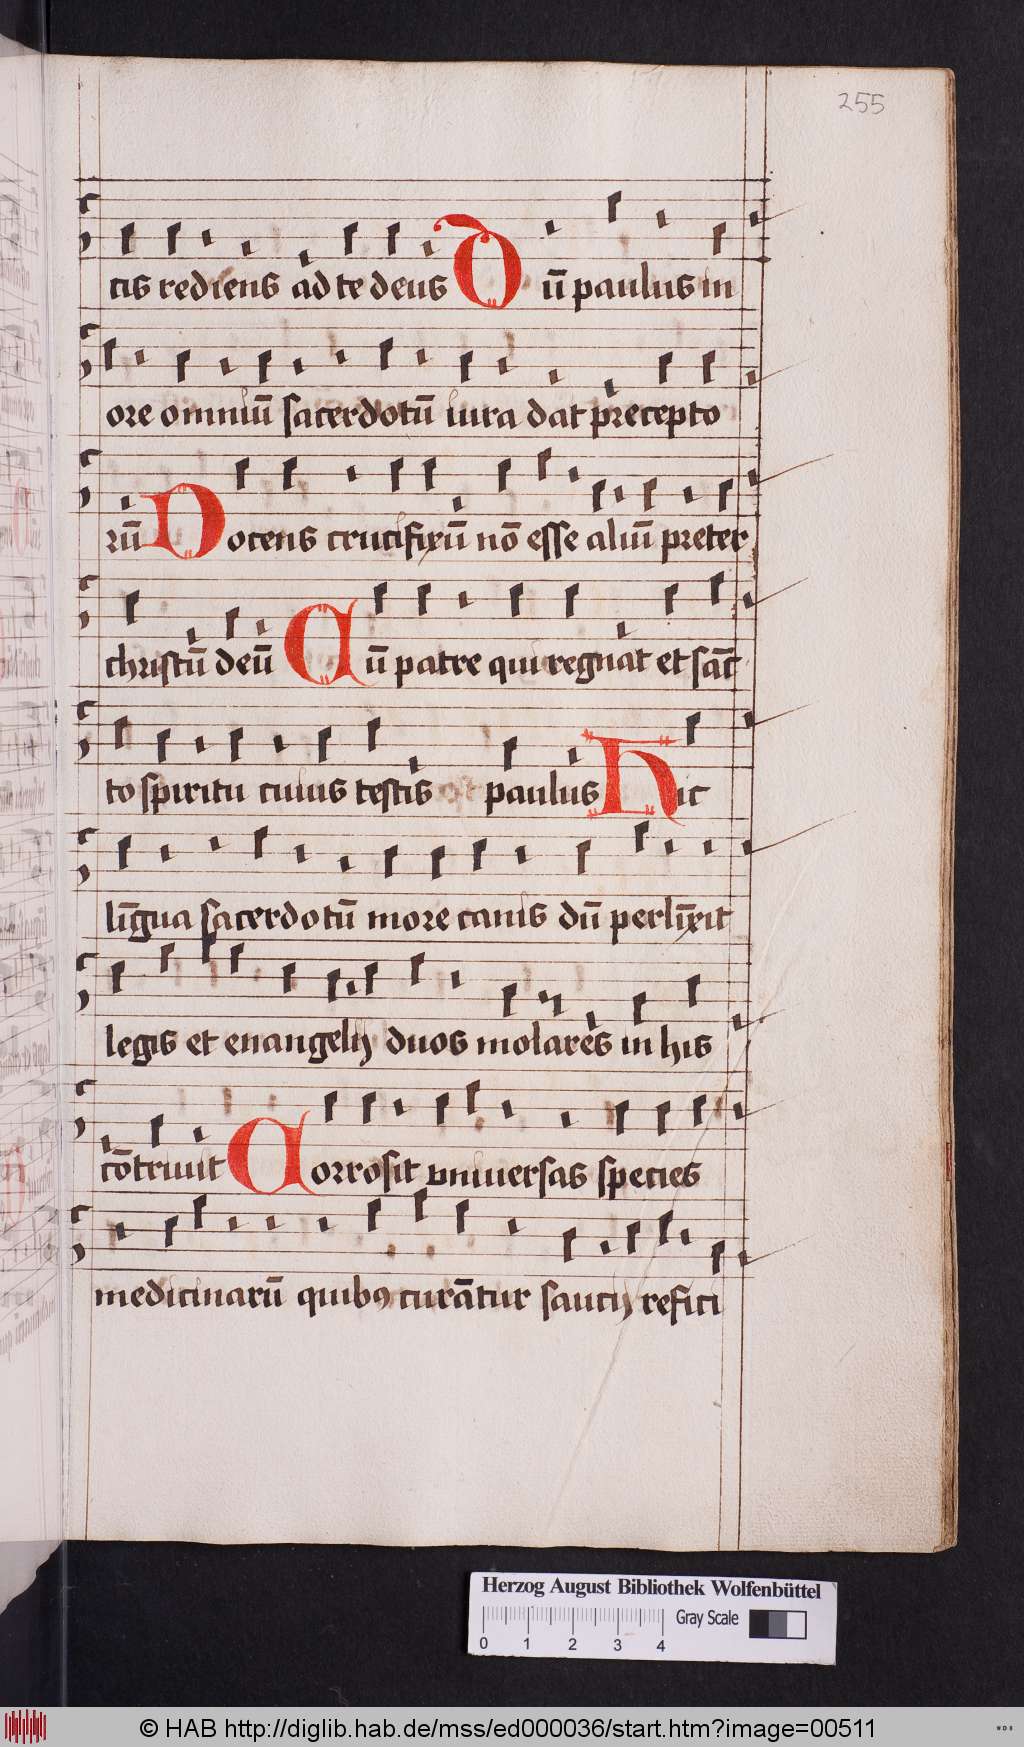 255
cis rediens ad te deus Dū paulus in
ore omniū sacerdotū iura dat precepto
rū Docens crucifixū nō esse aliū preter
christū deū Cū patre qui regnat et sāc
to spiritu cuius testis est paulus Hic
līgua sacerdotū more canis dū perlīxit
legis et euangelij duos molares in his
cōtriuit Corrosit vniuersas species
medicinarū quibꝯ curātur saucij refici
Herzog August Bibliothek Wolfenbüttel
0 1 2 3 4 Gray Scale
© HAB http://diglib.hab.de/mss/ed000036/start.htm?image=00511